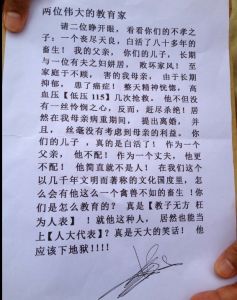 两位伟大的教育家
请二位睁开眼，看看你们的不孝之
子：一个丧尽良，白活了八十多年的
畜生！我的父亲，你们的儿子，长期
与一位有夫之妇姘居，败坏家风！至
家庭于不顾，害的我母亲，由于长期
抑郁，患了癌症！整天精神恍惚，高
血压【低压 115】几次抢救，他不但没
有一丝怜悯之心，反而，赶尽杀绝！居
然在我母亲病重期间，提出离婚，并
且，丝毫没有考虑到母亲的利益。你
们的儿子，真的是白活了！作为一个
父亲，他不配！作为一个丈夫，他更
不配！他简直就不是人！在我们这个
以几千年文明而著称的文化国度里，怎
么会有他这么一个禽兽不如的畜生！你
们是怎么教育的？真是【教子无方 枉
为人表】！就他这种人，居然也能当
上【人大代表】？真是天大的笑话！他
应该下地狱!!!!